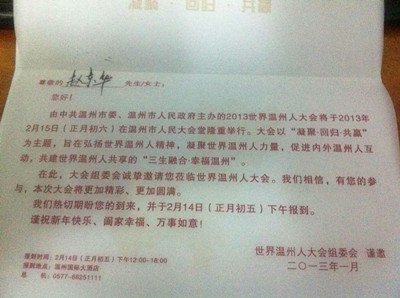 凝聚·回归·共赢
尊敬的 先生/女士:
您好!
由中共温州市委、温州市人民政府主办的2013世界温州人大会将于2013年
2月15日(正月初六)在温州市人民大会堂隆重举行。大会以“凝聚·回归·共赢”
为主题,旨在弘扬世界温州人精神,凝聚世界温州人力量,促进内外温州人互
动,共建世界温州人共享的“三生融合·幸福温州”。
在此,大会组委会诚挚邀请您莅临世界温州人大会。我们相信,有您的参
与,本次大会将更加精彩、更加圆满。
我们热切期盼您的到来,并于2月14日(正月初五)下午报到。
谨祝新年快乐、阖家幸福、万事如意!
世界温州人大会组委会 谨邀
二〇一三年一月
报到时间:2月14日(正月初五)下午12:00-18:00
报到地点:温州国际大酒店
总 机:0577-88251111